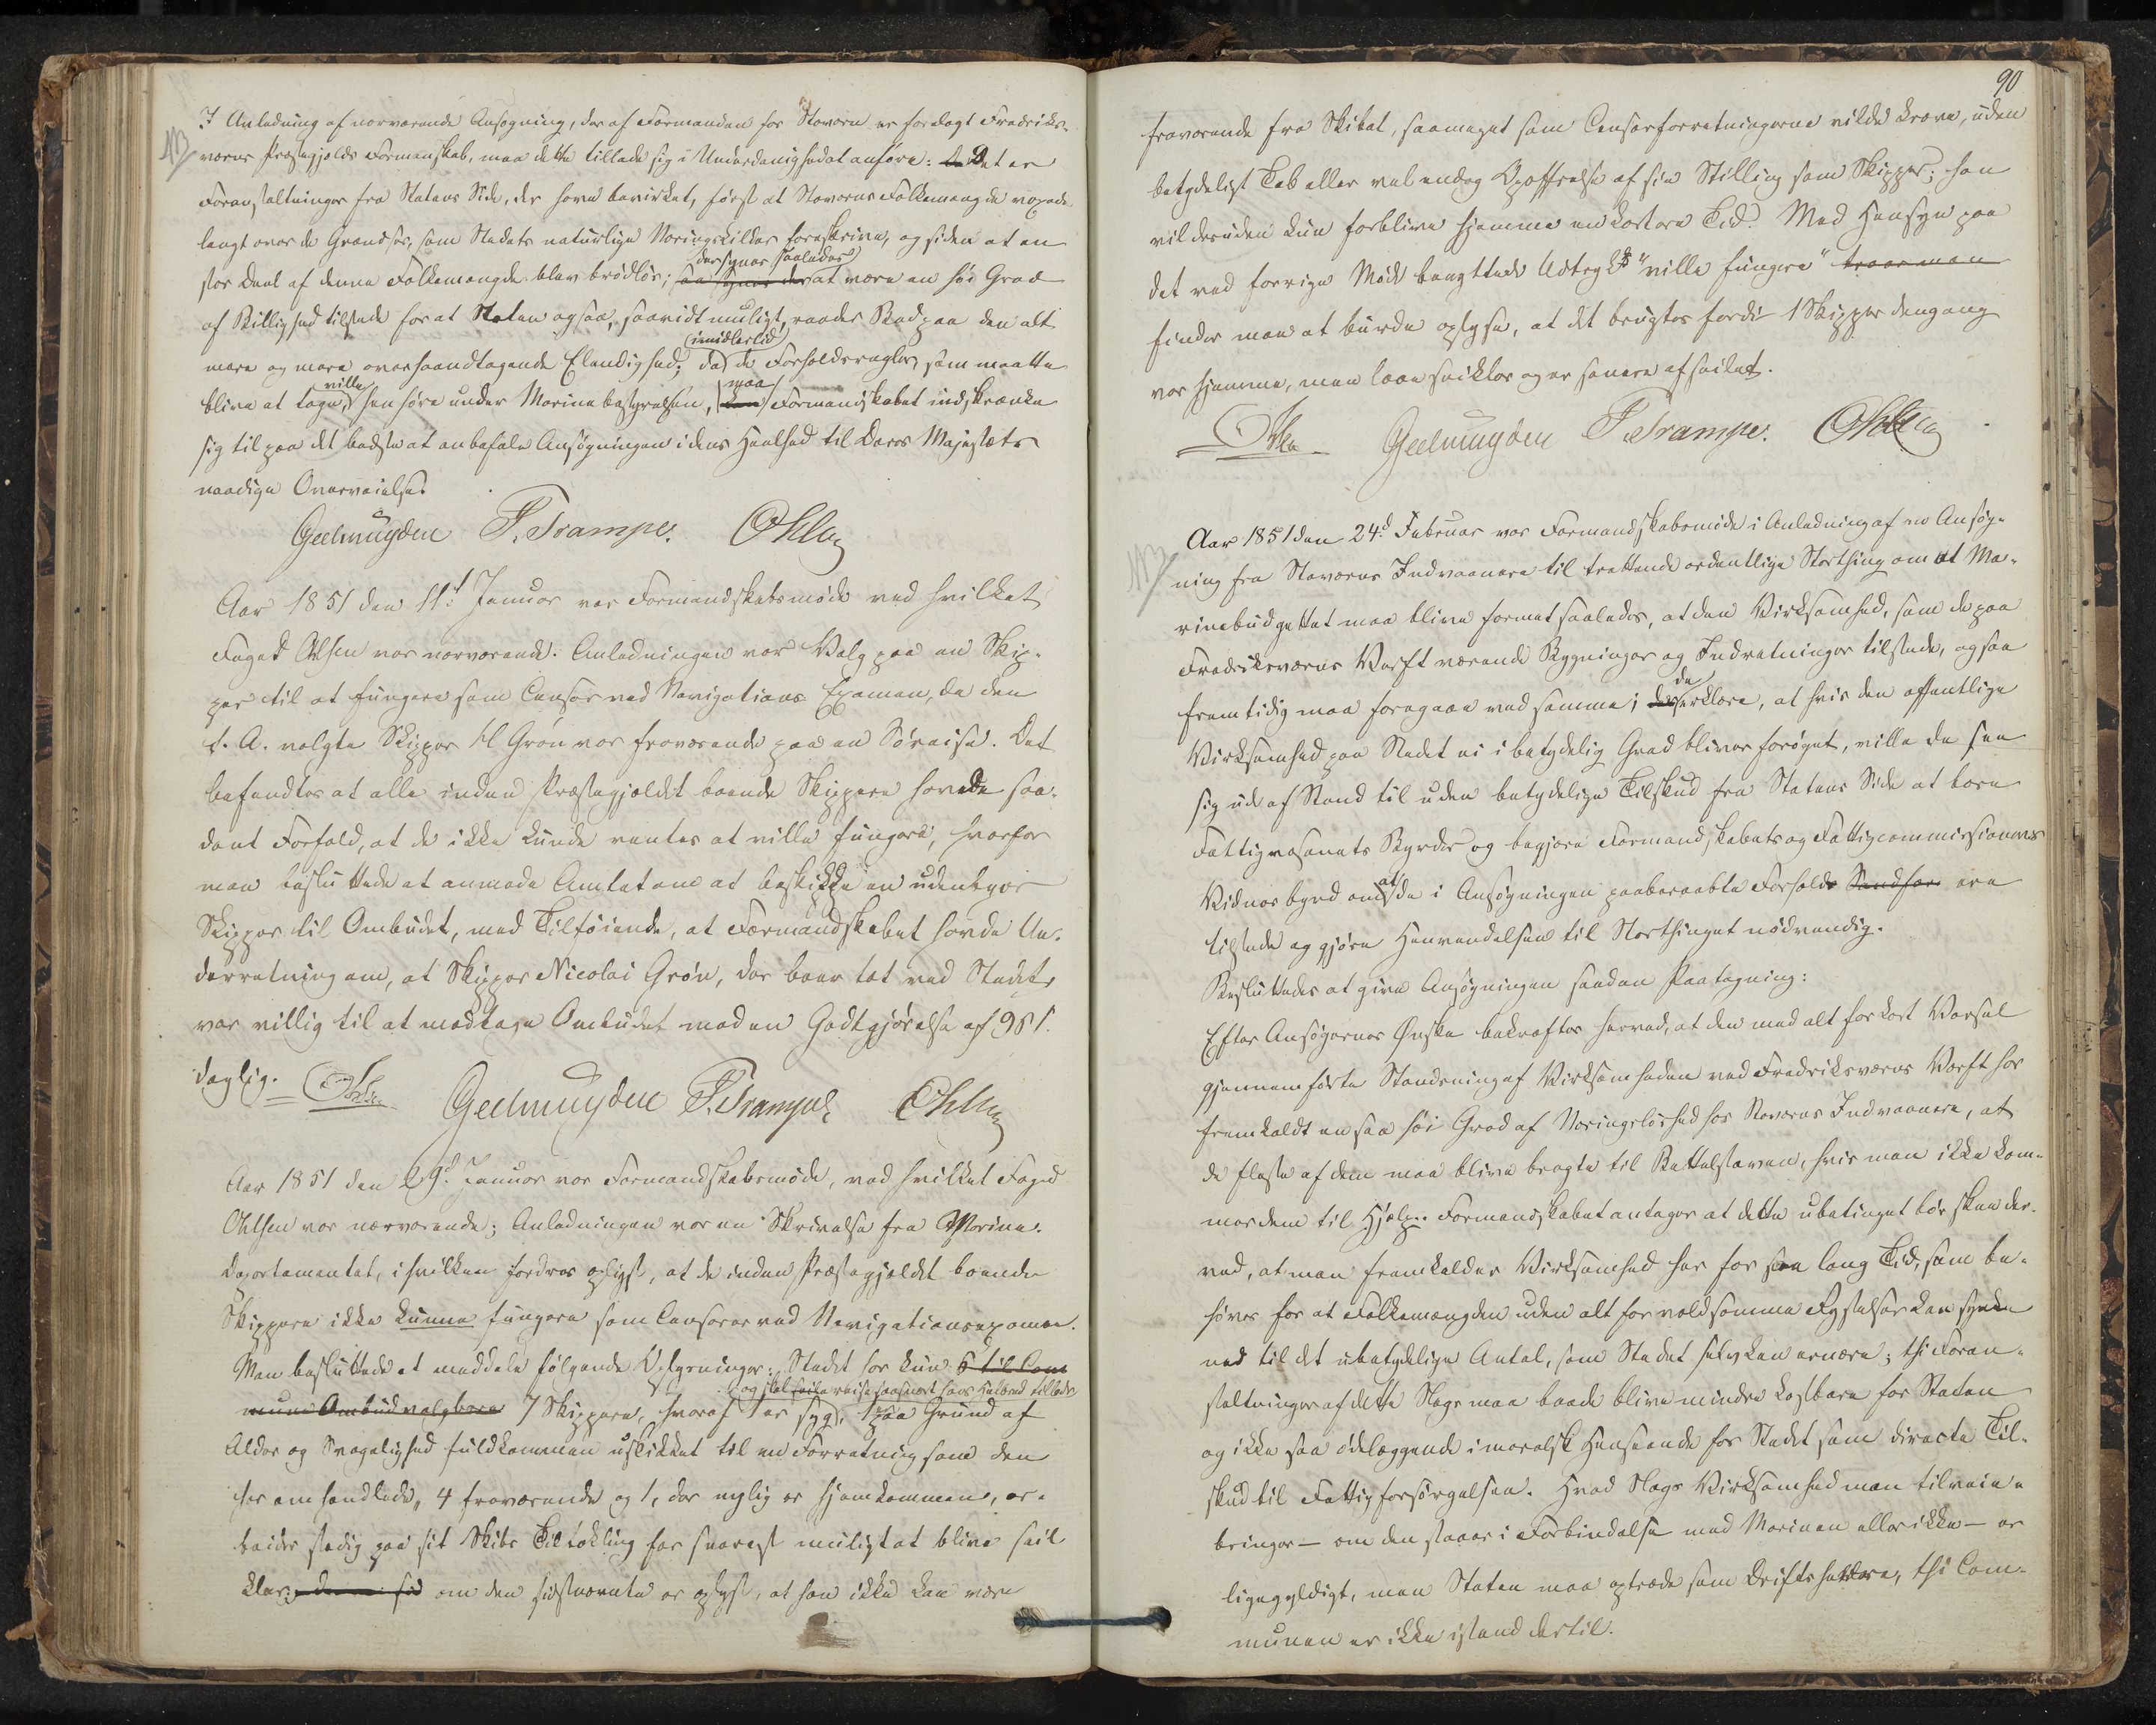 I Anledning af nærværende Ansøgning, der af Formanden for Stavern er forelagt Fredriks-
NB værns Præstegjelds Formanskab, maa dette tillade sig i Underdanighed at anføre: Det er
Foranstaltninger fra Statens Side, der have bevirket, først at Staverns Folkemængde voxede
langt over de Grændser, som Stedets naturlige Næringskilder foreskrive, og siden at en
der synes saaledes
stor Deel af denne Folkemængde blev brødløs; saa synes der at være en høi Grad
af Billighed tilstede for at Staten ogsaa, saavidt muligt, raader Bod paa den alt
imidlertid
mere og mere overhaandtagende Elendighed; da de Forholdsregler, som maatte
ville maa
blive at tage, henhøre under Marinebestyrelsen, kan Formandskabet indskrænke
sig til paa det bedste at anbefale Ansøgningen i dens Heelhed til Deres Majestæts
naadige Overveielse.
Geelmuyden F. Trampe. Ohlsen
Aar 1851 den 11t Januar var Formandskabsmøde ved hvilket
Foged Ohlsen var nærværende. Anledningen var Valg paa en Skip-
per til at fungere som Censor ved Navigations Examen, da den
f. A. valgte Skipper H Grøn var fraværende paa en Søreise. Det
befandtes at alle inden Præstegjeldet boende Skippere havde saa-
dant Forfald, at de ikke kunde ventes at ville fungere, hvorfor
man besluttede at anmode Amtet om at beskikke en udenbyes
Skipper til Ombudet, med Tilføiende, at Formandskabet havde Un-
derretning om, at Skipper Nicolai Grøn, der boer tæt ved Stedet,
var villig til at modtage Ombudet mod en Godtgjørelse af 98 ſ.
daglig. Ohlsen Geelmuyden F. Trampe Ohlsen
Aar 1851 den 29d Januar var Formandskabsmøde, ved hvilket Foged
Ohlsen var nærværende; Anledningen var en Skrivelse fra Marine-
Departementet, i hvilken fordres oplyst, at de inden Præstegjeldet boende
Skippere ikke kunne fungere som Censorer ved Navigationsexamen.
Man besluttede at meddele følgende Oplysninger: Stedet har kun 6 til Com
og skal reise saasnart hans Helbred tillader
mune Ombud valgbare 7 Skippere, hvoraf 1 er syg, 1 paa Grund af
Alder og Svagelighed fuldkommen uskikket til en Forretning som den
her omhandlede, 4 fraværende og 1, der nylig er hjemkommen, ar-
beider stadig paa sit Skibs Tiltakling for snarest muligt at blive seil
klar; om den sidstnævnte er oplyst, at han ikke kan være
90
fraværende fra Skibet, saameget som Censorforretningerne vilde kræve, uden
betydeligt Tab eller vel endog Opoffrelse af sin Stilling som Skipper; han
vil desuden kun forblive hjemme en kortere Tid. Med Hensyn paa
det ved forrige Møde benyttede Udtryk "ville fungere" troer man
finder man at burde oplyse, at det brugtes fordi 1 Skipper dengang
var hjemme, men laae seilklar og er senere afseilet.
Ohlsen Geelmuyden F. Trampe. Ohlsen
Aar 1851 den 24d Februar var Formandskabsmøde i Anledning af en Ansøg-
NB ning fra Staverns Indvaanere til trettende ordentlige Storthing om at Ma-
rinebudgettet maa blive formet saaledes, at den Virksomhed, som de paa
Fredriksværns Værft værende Bygninger og Indretninger tilstede, ogsaa
de
fremtidig maa foregaae ved samme; der erklære, at hvis den offentlige
Virksomhed paa Stedet ei i betydelig Grad bliver forøget, ville de see
sig ud af Stand til uden betydelige Tilskud fra Statens Side at bære
Fattigvæsenets Byrder og begjære Formandskabets og Fattigcommissionens
at
Vidnesbyrd om de i Ansøgningen paaberaabte Forholde Sandfær ere
tilstede og gjøre Henvendelsen til Storthinget nødvendig.
Besluttedes at give Ansøgningen saadan Paategning:
Efter Ansøgernes Ønske bekræftes herved, at den med alt for kort Varsel
gjennemførte Standsning af Virksomheden ved Fredriksværns Værft har
fremkaldt en saa høi Grad af Næringsløshed hos Staverns Indvaanere, at
de fleste af dem maa blive bragte til Bettelstaven, hvis man ikke kom-
mer dem til Hjælp. Formandskabet antager at dette ubetinget bør skee der-
ved, at man fremkalder Virksomhed her for saa lang Tid, som be-
høves for at Folkemængden uden alt for voldsomme Rystelser kan synke
ned til det ubetydelige Antal, som Stedet selv kan ernære; thi Foran-
staltninger af dette Slags maa baade blive mindre kostbare for Staten
og ikke saa ødelæggende i moralsk Henseende for Stedet som directe Til-
skud til Fattigforsørgelsen. Hvad Slags Virksomhed man tilveie-
bringer – om den staaer i Forbindelse med Marinen eller ikke – er
ligegyldigt, men Staten maa optræde som Driftsherre, thi Com-
munen er ikke istand dertil.